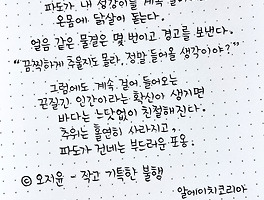 파도가, 내 정강이를 계속
온몸에 닭살이 돋는다.
얼음 같은 물결은 몇 번이고 경고를 보낸다.
"끔찍하게 추울지도 몰라, 정말 들어올 생각이야?"
그럼에도 계속 걸어 들어오는
끈질긴 인간이라는 확신이 생기면
바다는 느닷없이 친절해진다.
추위는 홀연히 사라지고,
파도가 건네는 부드러운 포옹.
© 오지윤 - 작고 기특한 불행
알에이치코리아